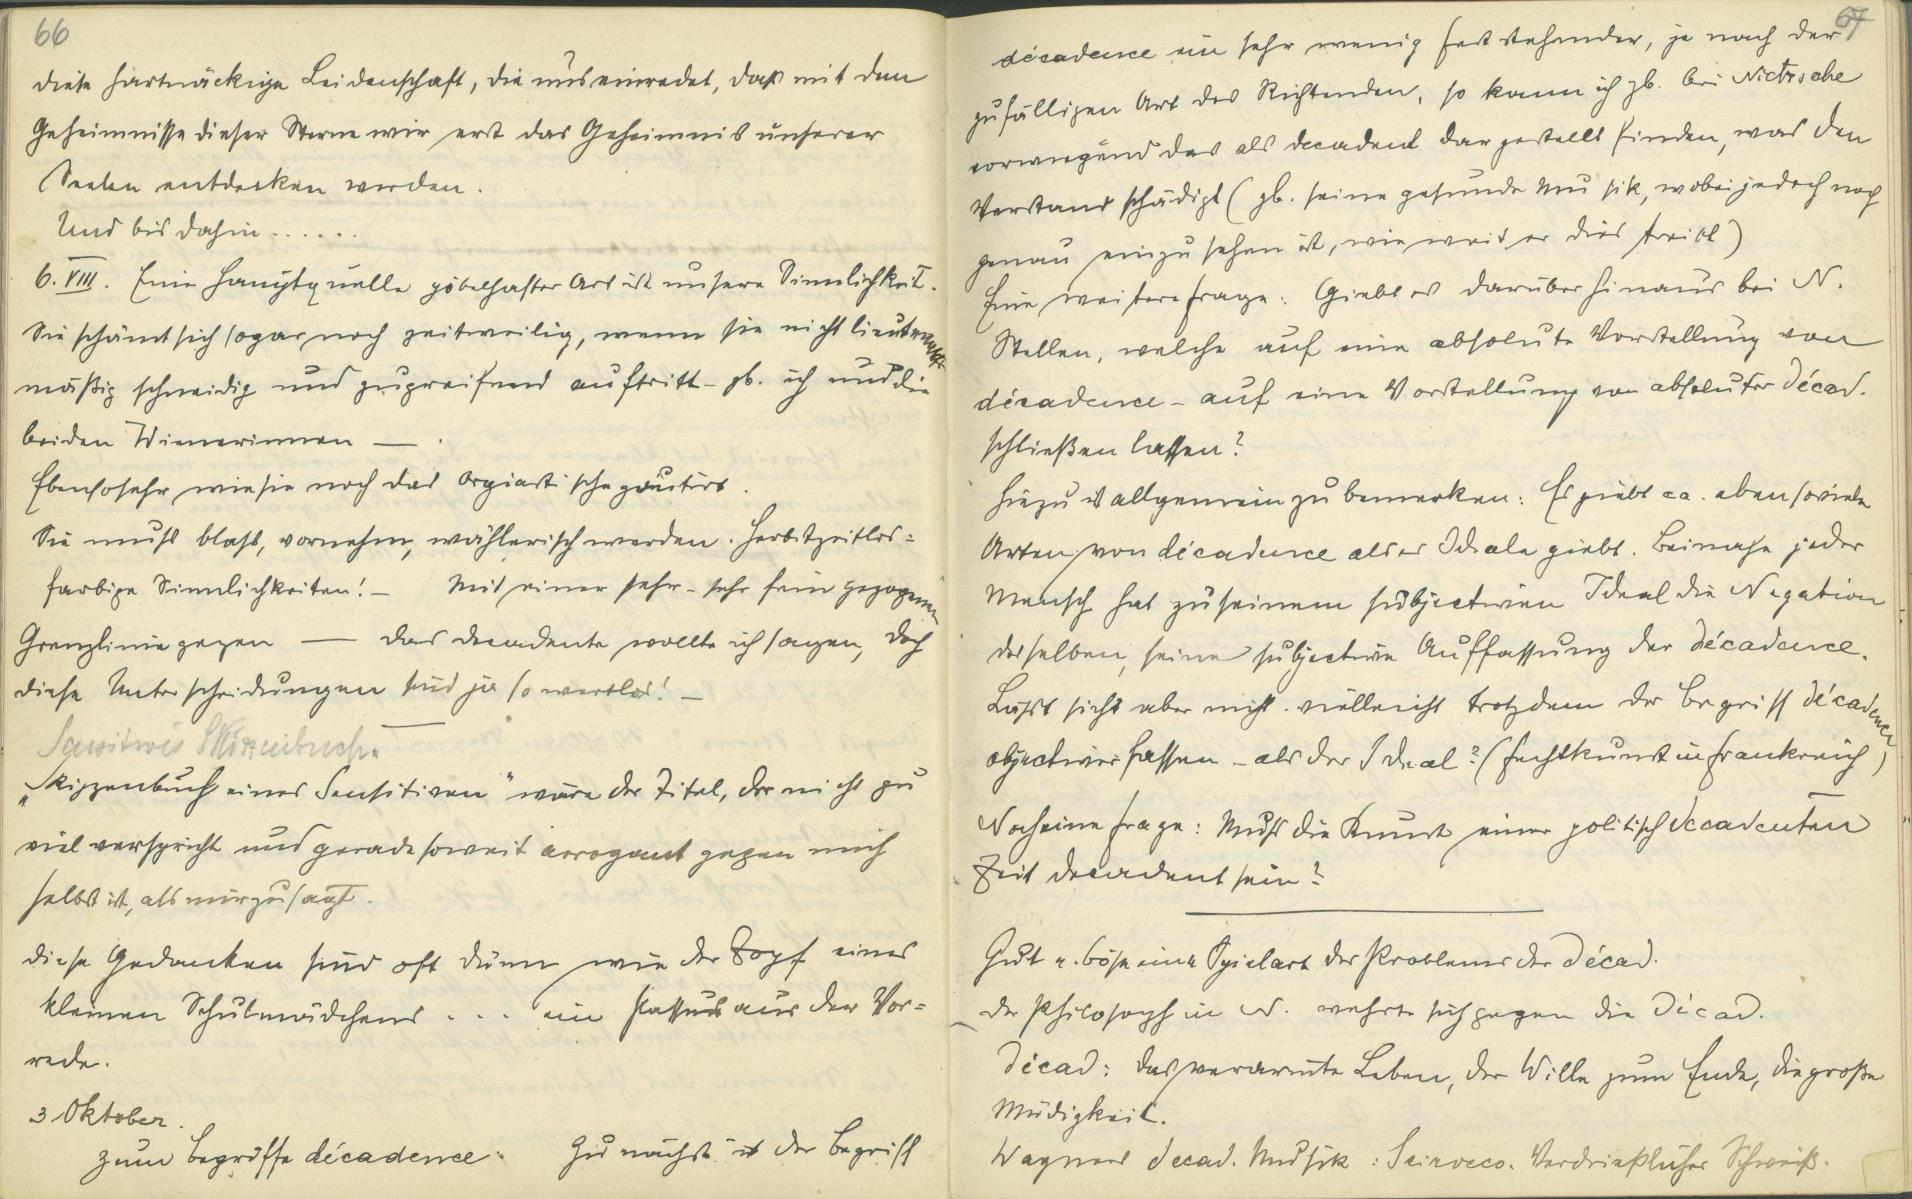 66
diese hartnäckige Leidenschaft, die uns einredet, daß mit dem
Geheimnisse dieser Sterne wir erst das Geheimnis unserer
Seelen entdecken werden.
Und bis dahin ......
6. VIII. Eine Hauptquelle pöbelhafter Art ist unsere Sinnlichkeit.
Sie schämt sich sogar noch zeitweilig, wenn sie nicht lieutenants
mäßig schneidig und zugreifend auftritt – zb. ich und die
beiden Wienerinnen — .
Ebensosehr wie sie noch das Orgiastische goutirt.
Sie muß blaß, vornehm, wählerisch werden. Herbstzeitlos=
farbige Sinnlichkeiten! – Mit einer sehr – sehr fein gezogenen
Grenzlinie gegen — das decadente wollte ich sagen, doch
diese Unterscheidungen sind ja so wertlos! –
Skizzenbuch
„Skizzenbuch eines Sensitiven" wäre der Titel, der nicht zu
viel verspricht und gerade soweit arrogant gegen mich
selbst ist, als mir zusagt.
Diese Gedanken sind oft dünn wie der Zopf eines
kleinen Schulmädchens . . . ein Passus aus der Vor=
rede.
3 Oktober.
Zum Begriffe décadence: Zunächst ist der Begriff
67
décadence ein sehr wenig feststehender, je nach der
zufälligen Art des Richtenden, so kann ich zb. bei Nietzsche
vorwiegend das als decadent dargestellt finden, was den
Verstand schädigt (zb. seine gesunde Musik, wobei jedoch noch
genau einzusehen ist, wie weit er dies treibt)
Eine weitere Frage: Giebt es darüber hinaus bei N.
Stellen, welche auf eine absolute Vorstellung von
décadence – auf eine Vorstellung von absoluter Décad.
schließen lassen?
Hiezu ist allgemein zu bemerken: Es giebt ca. ebensoviele
Arten von décadence als es Ideale giebt. Beinahe jeder
Mensch hat zu seinem subjectiven Ideal die Negation
desselben, seine subjective Auffassung der Décadence.
Läßt sich aber nicht vielleicht trotzdem der Begriff décadence
objectiver fassen – als der Ideal? (Fechtkunst in Frankreich)
Noch eine Frage: Muß die Kunst einer politisch decadenten
Zeit decadent sein?
Gut u. böse eine Spielart des Problemes der Décad.
der Philosoph in N. wehrte sich gegen die Décad.
Décad: das verarmte Leben, der Wille zum Ende, die große
Müdigkeit.
Wagners decad. Musik: Scirocco. Verdrießlicher Schweiß.